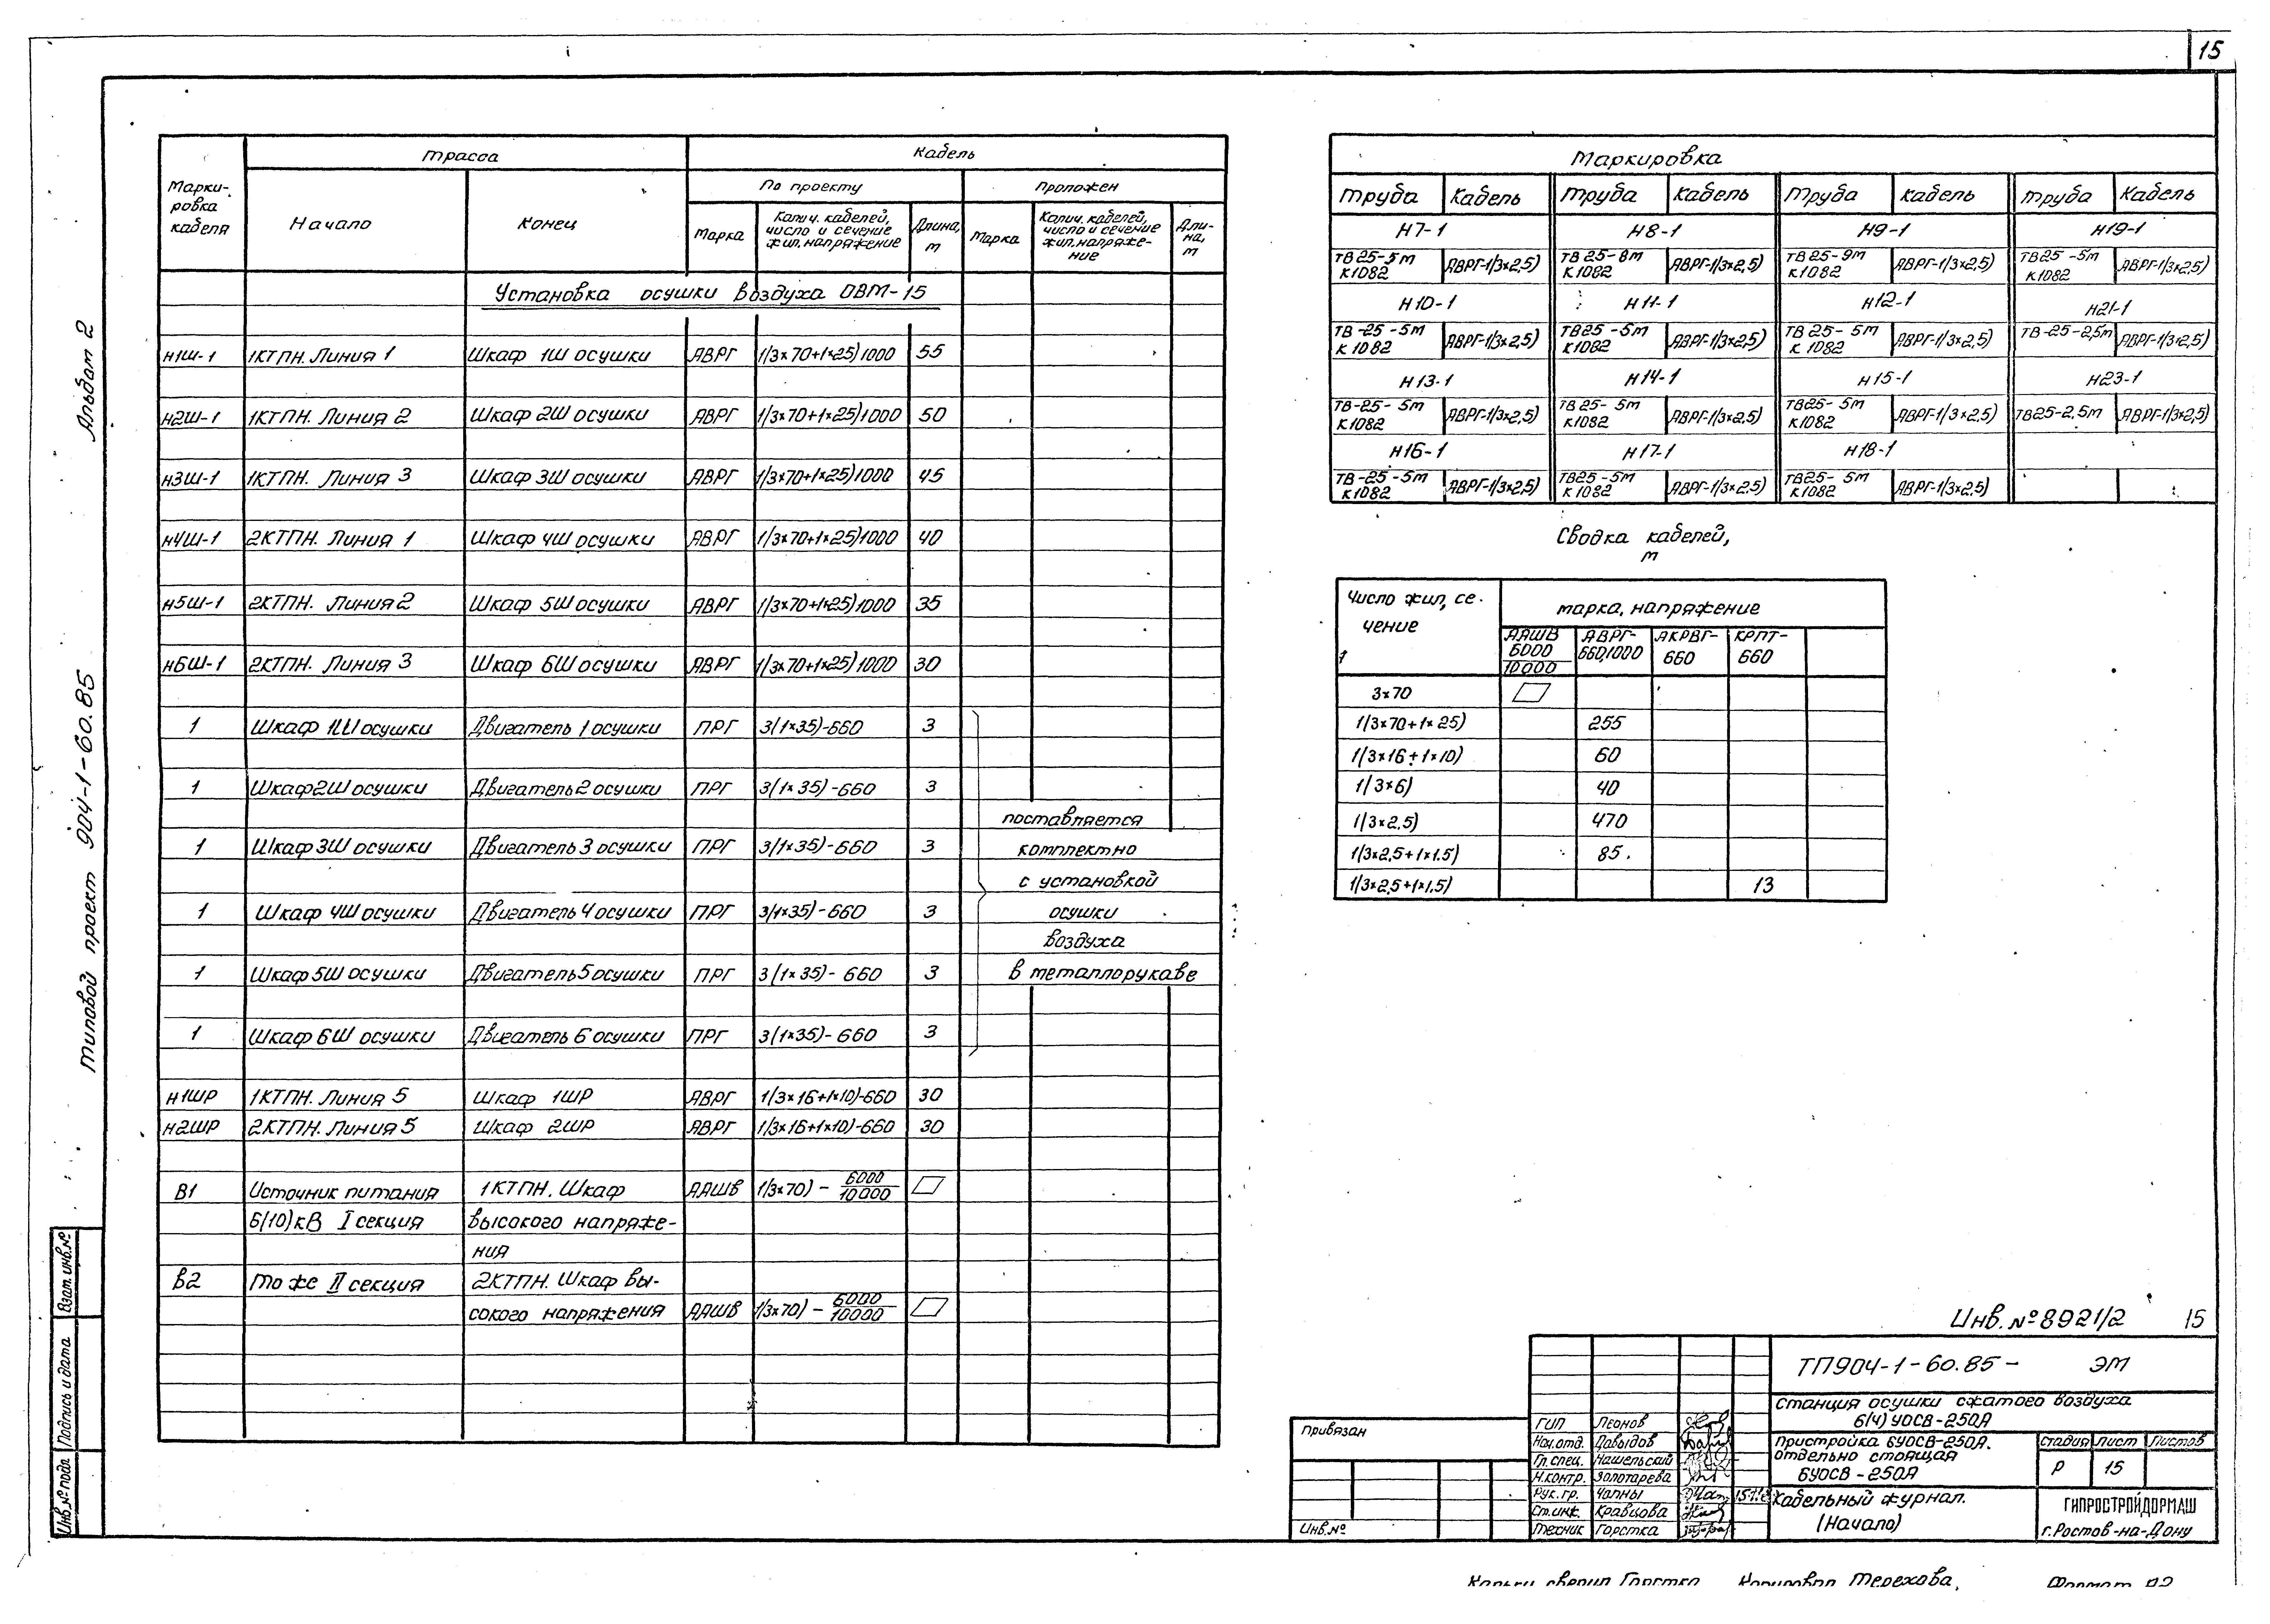 15
Альбом 2
Типовой проект 904-1-60.85
Марки-
ровка
кабеля
Трасса
Кабель
Начало
Конец
По проекту
Проложен
Марка
Колич. кабелей,
число и сечение
жил, напряжение
Длина,
м
Марка
Колич. кабелей,
число и сечение
жил, напряже-
ние
Дли-
на,
м
Установка осушки воздуха ОВМ-15
Н1Ш-1 1КТПН. Линия 1 Шкаф 1Ш осушки АВРГ 1(3×70+1×25)1000 55
Н2Ш-1 1КТПН. Линия 2 Шкаф 2Ш осушки АВРГ 1(3×70+1×25)1000 50
Н3Ш-1 1КТПН. Линия 3 Шкаф 3Ш осушки АВРГ 1(3×70+1×25)1000 45
Н4Ш-1 2КТПН. Линия 1 Шкаф 4Ш осушки АВРГ 1(3×70+1×25)1000 40
Н5Ш-1 2КТПН. Линия 2 Шкаф 5Ш осушки АВРГ 1(3×70+1×25)1000 35
Н6Ш-1 2КТПН. Линия 3 Шкаф 6Ш осушки АВРГ 1(3×70+1×25)1000 30
1 Шкаф 1Ш осушки Двигатель 1 осушки ПРГ 3(1×35)-660 3
1 Шкаф 2Ш осушки Двигатель 2 осушки ПРГ 3(1×35)-660 3
поставляется
1 Шкаф 3Ш осушки Двигатель 3 осушки ПРГ 3(1×35)-660 3 комплектно
с установкой
1 Шкаф 4Ш осушки Двигатель 4 осушки ПРГ 3(1×35)-660 3 осушки
воздуха
1 Шкаф 5Ш осушки Двигатель 5 осушки ПРГ 3(1×35)-660 3 в металлорукаве
1 Шкаф 6Ш осушки Двигатель 6 осушки ПРГ 3(1×35)-660 3
Н1ШР 1КТПН. Линия 5 Шкаф 1ШР АВРГ 1(3×16+1×10)-660 30
Н2ШР 2КТПН. Линия 5 Шкаф 2ШР АВРГ 1(3×16+1×10)-660 30
В1 Источник питания 1КТПН. Шкаф ААШВ 1(3×70) - 6000/10000
6(10)кВ I секция высокого напряже-
ния
В2 То же II секция 2КТПН. Шкаф вы-
сокого напряжения ААШВ 1(3×70) - 6000/10000
Маркировка
Труба Кабель Труба Кабель Труба Кабель Труба Кабель
Н7-1 Н8-1 Н9-1 Н19-1
ТВ25-5м АВРГ-1(3×2,5) ТВ25-8м АВРГ-1(3×2,5) ТВ25-9м АВРГ-1(3×2,5) ТВ25-5м АВРГ-1(3×2,5)
К1082 К1082 К1082 К1082
Н10-1 Н11-1 Н12-1 Н21-1
ТВ-25-5м АВРГ-1(3×2,5) ТВ25-5м АВРГ-1(3×2,5) ТВ25-5м АВРГ-1(3×2,5) ТВ-25-2,5м АВРГ-1(3×2,5)
К1082 К1082 К1082
Н13-1 Н14-1 Н15-1 Н23-1
ТВ-25-5м АВРГ-1(3×2,5) ТВ25-5м АВРГ-1(3×2,5) ТВ25-5м АВРГ-1(3×2,5) ТВ25-2,5м АВРГ-1(3×2,5)
К1082 К1082 К1082
Н16-1 Н17-1 Н18-1
ТВ-25-5м АВРГ-1(3×2,5) ТВ25-5м АВРГ-1(3×2,5) ТВ25-5м АВРГ-1(3×2,5)
К1082 К1082 К1082
Сводка кабелей,
м
Число жил, се-
чение
марка, напряжение
ААШВ 6000/10000
АВРГ-660,1000
АКРВГ-660
КРПТ-660
3×70
1(3×70+1×25) 255
1(3×16+1×10) 60
1(3×6) 40
1(3×2.5) 470
1(3×2,5+1×1.5) 85
1(3×2,5+1×1.5) 13
Инв.№ 8921/2 15
ТП904-1-60.85- ЭМ
Станция осушки сжатого воздуха
6(4)УОСВ-250А
Пристройка 6УОСВ-250А.
отдельно стоящая
6УОСВ-250А
Стадия Лист Листов
Р 15
Кабельный журнал.
(Начало)
ГИПРОСТРОЙДОРМАШ
г.Ростов-на-Дону
Привязан
Инв.№
ГИП Леонов
Нач.отд. Давыдов
Гл.спец. Нашельский
Н.контр. Золотарева
Рук.гр. Чапны
Ст.инж. Кравцова
Техник Горстка
Взам.инв.№
Подпись и дата
Инв.№ подл
Кальку сверил Горстка Копировал Терехова. Формат А2